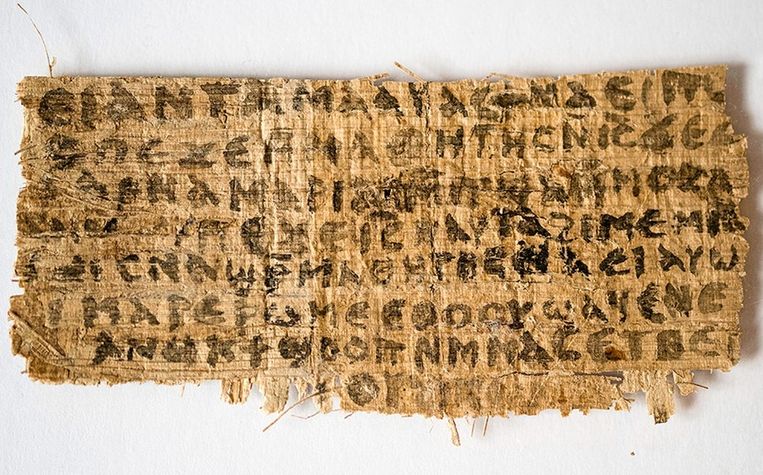 ⲉⲓ ⲁⲛ ⲧⲁⲙⲁⲁⲩ ⲁⲥϯ ⲛⲁⲉⲓ
ⲡⲉϫⲉ ⲙⲙⲁⲑⲏⲧⲏⲥ ⲛⲓ̅ⲥ̅ ϫⲉ ⲥ
ⲁⲣⲛⲁ ⲙⲁⲣⲓⲁⲙ ⲙⲡϣⲁ ⲙⲙⲟⲥ ⲁ
ⲡⲉϫⲉ ⲓ̅ⲥ̅ ⲛⲁⲩ ⲧⲁϩⲓⲙⲉ ⲙⲛ
ⲥⲛⲁϣⲣⲙⲁⲑⲏⲧⲏⲥ ⲛⲁⲉⲓ ⲁⲩⲱ
ⲙⲁⲣⲉⲣⲱⲙⲉ ⲉⲑⲟⲟⲩ ϣⲁϥⲉ ⲛⲉ
ⲁⲛⲟⲕ ϯϣⲟⲟⲡ ⲛⲙⲙⲁⲥ ⲉⲧⲃⲉ